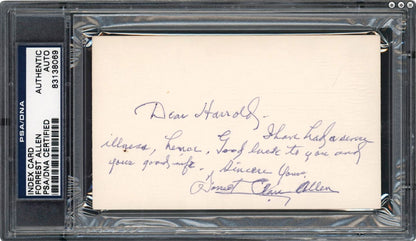 PSA/DNA
INDEX CARD
FORREST ALLEN
PSA/DNA CERTIFIED
AUTHENTIC
AUTO
83138069
Dear Harrold,
I have had a
illness, hence, Good luck to you and
your good wife. Sincere Yours,
Forrest Allen